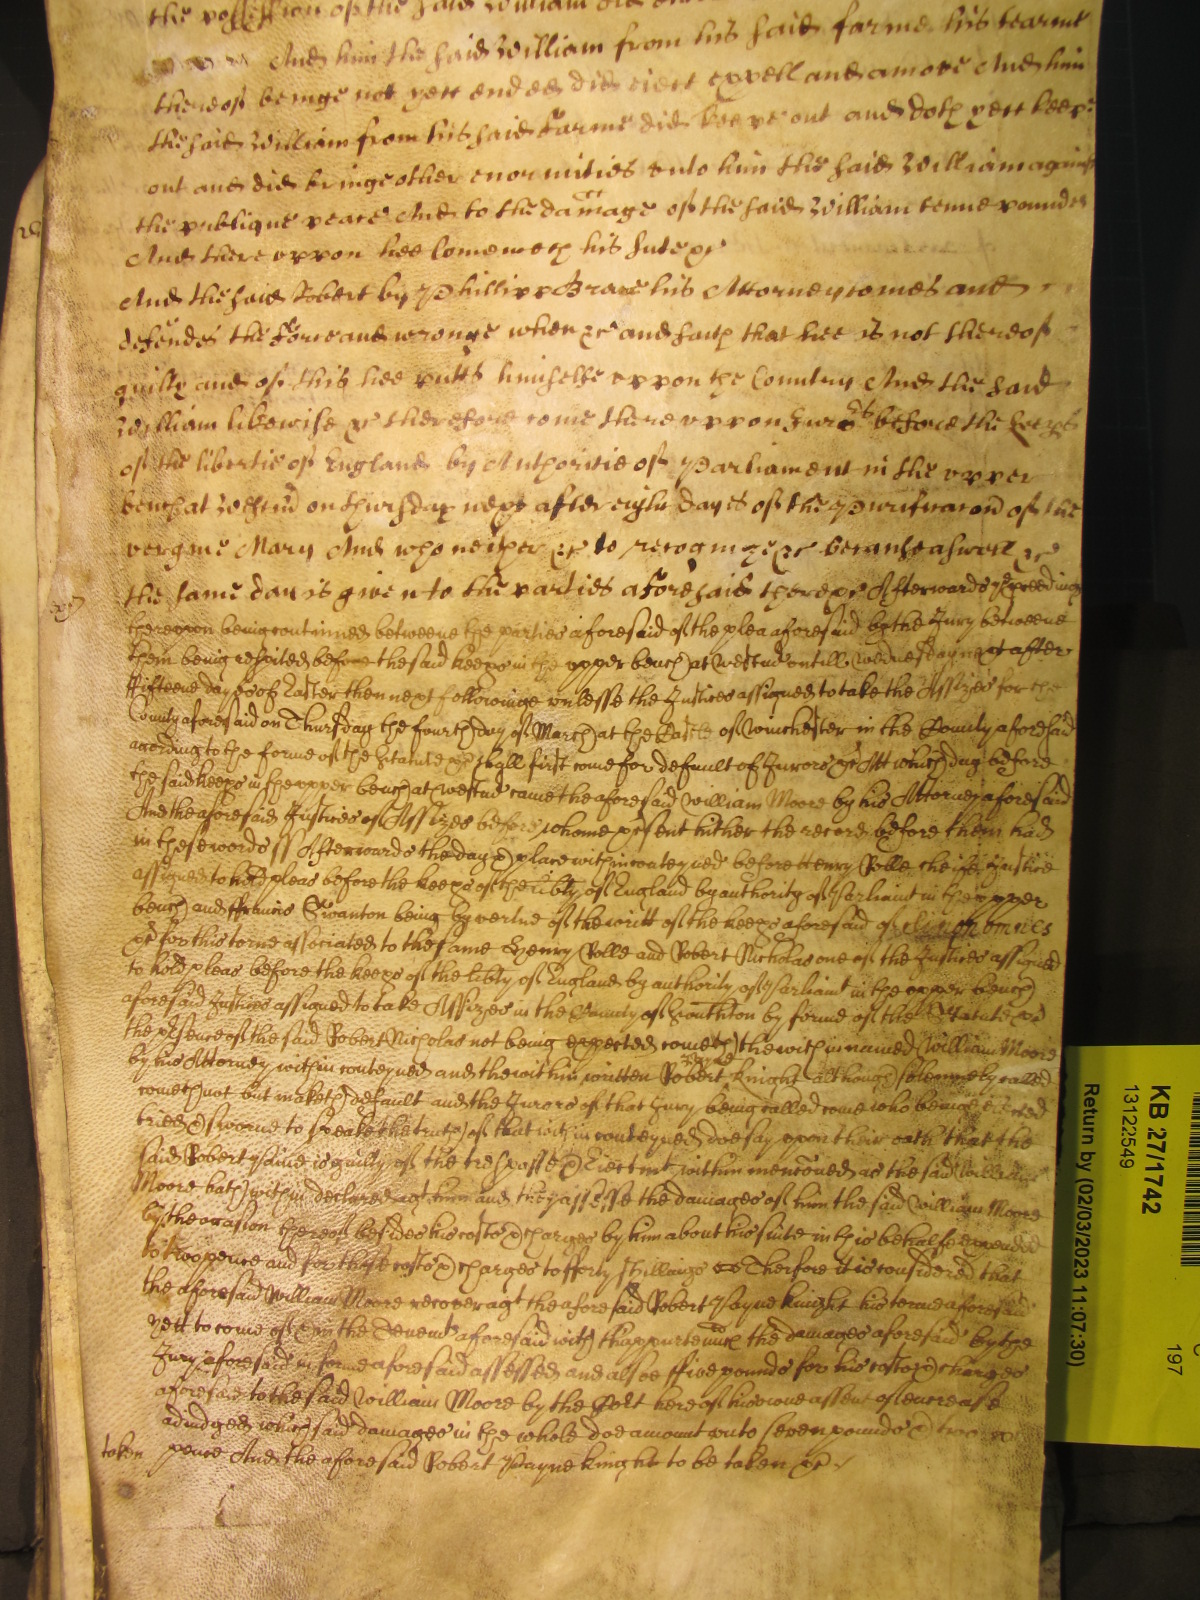 the possession of the said William did
And him the said William from his said farme his tearme
thereof beinge not yett ended did eiect expell and amove And him
the said William from his said Farme did keepe out and doth yett keepe
out and did bringe other enormities unto him the said William against
the publique peace And to the dammage of the said William tenne poundes
And there uppon hee Commeth his sute &c
And the said Robert by Phillipp Brace his Attorney comes and
defendes the force and wronge when &c and saith that hee is not thereof
guilty and of this hee putts himselfe uppon the Country And the said
William likewise &c therefore come there uppon Jurats before the keepers
of the libertie of England by Authoritie of Parliament in the upper
bench at Westmr on thursday next after eight dayes of the Purificacon of the
vergine Mary And who neither &c to recognize &c because aswell &c
the same day is given to the parties aforesaid there &c Afterwards proceedinge
thereupon being continued betweene the parties aforesaid of the plea aforesaid by the Jury betweene
them being respited before the said keeps in the upper bench at Westmr untill Wednesday next after
fifteene dayes of Easter then next followinge unlesse the Justices assigned to take the Assizes for the
County aforesaid on Thursday the fourth day of March at the Castle of Winchester in the County aforesaid
acording to the forme of the Statute &c shall first come for default of Jurors &c Att which day before
the said keeps in the upper bench at Westmr came the aforesaid William Moore by his Attorney aforesaid
And the aforesaid Justices of Assizes before whome &c sent hither the record before them had
in these words ss Afterwards the day & place within conteyned before Henry Rolle cheife Justice
assigned to hold pleas before the keeps of the libty of England by authority of Parliamt in the upper
bench and ffrancis Swanton being by vertue of the writt of the keeps aforesaid of si non omnes
&c for this turne associated to the same Henry Rolle and Robert Nicholas one of the Justices assigned
to hold pleas before the keeps of the libty of England by authority of Parliamt in the upper bench
aforesaid Justices assigned to take Assizes in the County of Southton by forme of the Statute &c
the psence of the said Robert Nicholas not being expected cometh the within named William Moore
by his Attorney within conteyned and the within written Robert Payne Knight although solemnely called
cometh not but maketh default and the Jurors of that Jury being called come who being elected
tried & sworne to speake the truth of that within conteyned doe say upon their oath that the
said Robert Payne is guilty of the trespasse & Eiectmt within menconed as the said William
Moore hath within declared agt him and they assesse the damages of him the said William Moore
by the occasion thereof besides his costs & charges by him about his suite in this behalfe expended
to two pence and for those costs & charges to fforty shillings Therfore it is considered that
the aforesaid William Moore recover agt the aforesaid Robert Payne Knight his terme aforesaid
yett to come of & in the Tenemts aforesaid with thappurtennces the damages aforesaid by the
Jury aforesaid in forme aforesaid assessed and alsoe ffive pounds for his costs & charges
aforesaid to the said William Moore by the Cort here of his owne assent of encrease
adiudged which said damages in the whole doe amount unto seven pounds & two
taken pence And the aforesaid Robert Payne Knight to be taken &c
KB 27/1742
13122549
Return by (02/03/2023 11:07:30)
197